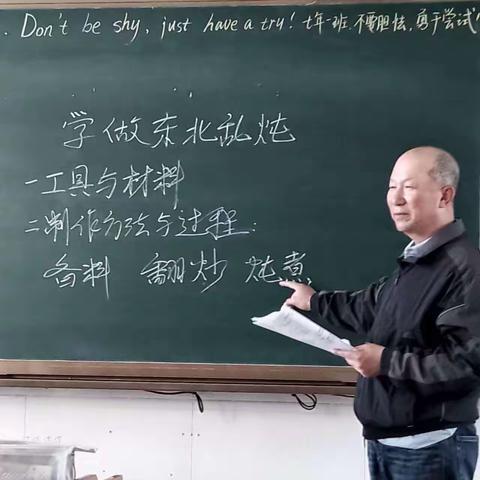 . Don't be shy, just have a try! 七年一班 不要胆怯,勇于尝试
学做东北乱炖
一工具与材料
二制作方法与过程:
备料 翻炒 炖煮